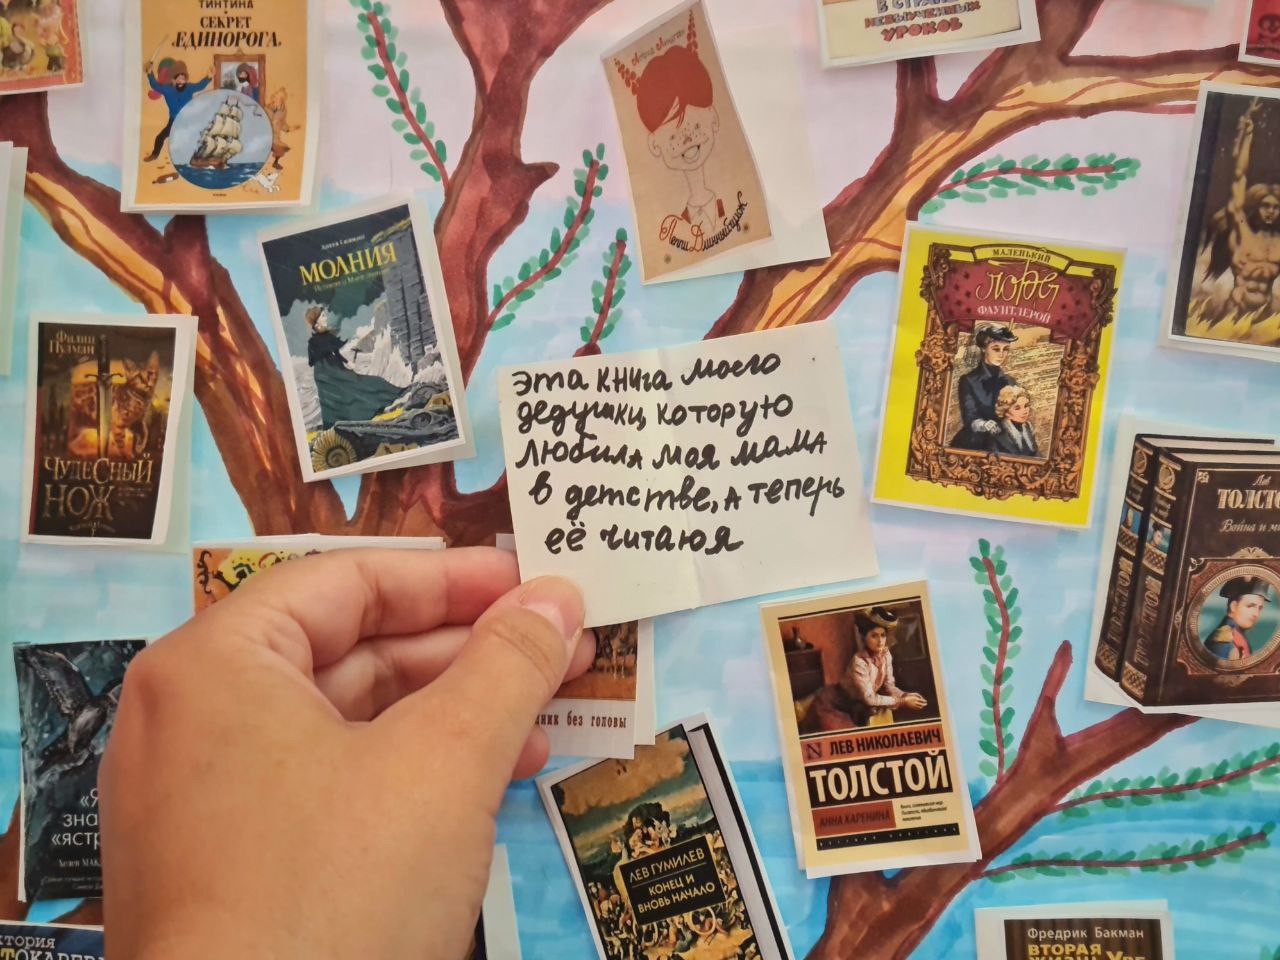 ТИНТИНА
СЕКРЕТ
«ЕДИНОРОГА»
В СТРАНЕ
НЕВЫУЧЕННЫХ
УРОКОВ
МОЛНИЯ
Пеппи Длинныйчулок
МАЛЕНЬКИЙ
лорд
ФАУНТЛЕРОЙ
Филип
Пулман
ЧУДЕСНЫЙ
НОЖ
эта книга моего
дедушки, которую
любила моя мама
в детстве, а теперь
её читаю я
Лев
ТОЛСТОЙ
Война и ми
ТОЛСТОЙ
ТОЛСТОЙ
ЛЕВ НИКОЛАЕВИЧ
ТОЛСТОЙ
АННА КАРЕНИНА
дник без головы
ЛЕВ ГУМИЛЕВ
КОНЕЦ И
ВНОВЬ НАЧАЛО
«Я
зна
"ястр
Хелен МАК
ктория
ТОКАРЕВА
Фредрик Бакман
ВТОРАЯ
ЖИЗНЬ УВЕ